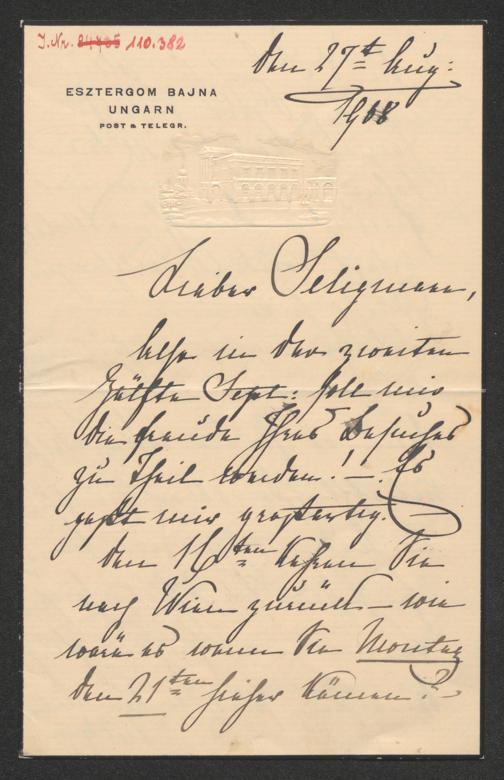 J. Nr. 84705 110.382
den 27t Aug:
1908
ESZTERGOM BAJNA
UNGARN
POST & TELEGR.
Lieber Seligmann,
Also in der zweiten
Hälfte Sept: soll mir
die Freude Ihres Besuches
zu Theil werden! –. Es
paßt mir großartig. –
Den 16ten kehren Sie
nach Wien zurück – wie
wäre es wenn Sie Montag
den 21ten hieher kämen? –